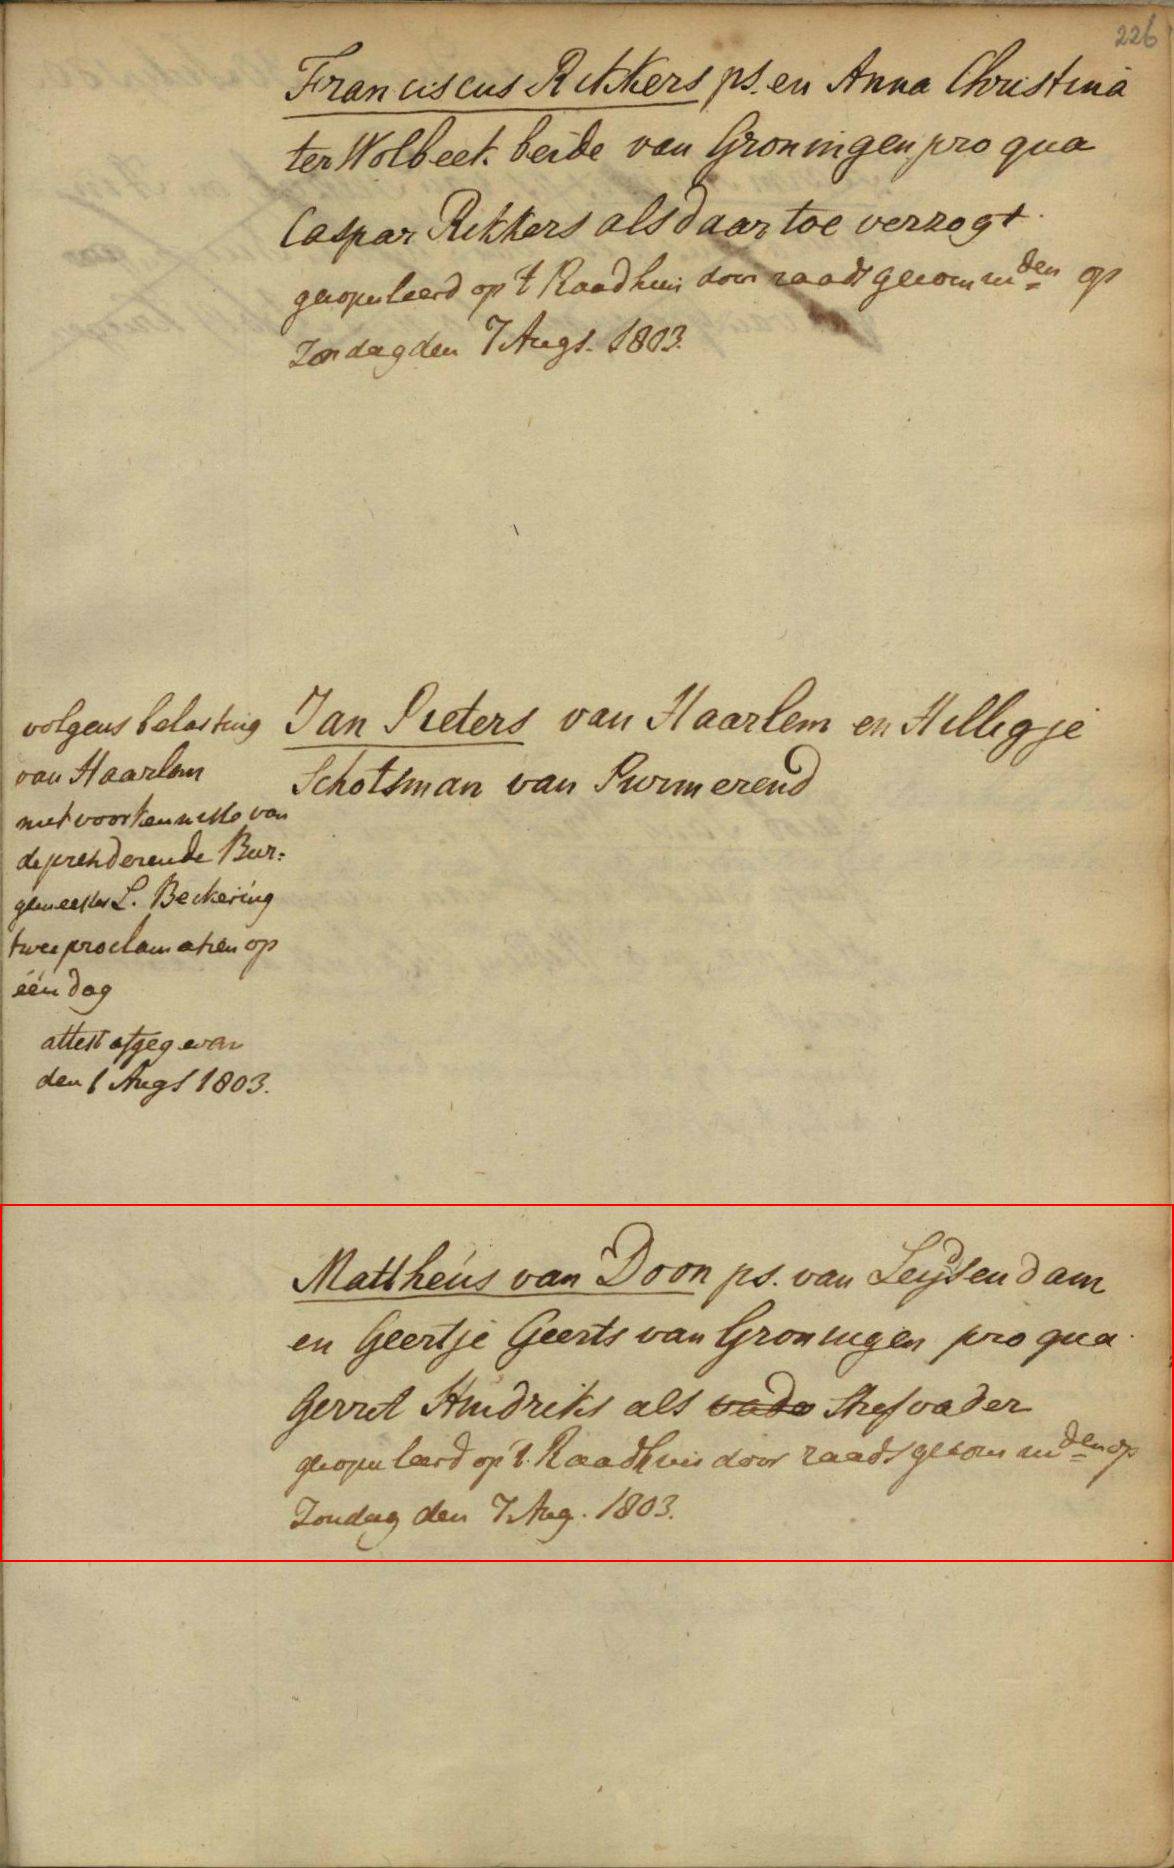 226
Franciscus Rikkers ps. en Anna Christina
ter Wolbeek beide van Groningen pro qua
Caspar Rikkers als daar toe verzogt
gecopuleerd op 't Raadhuis door raads gecommden op
Zondag den 7 Augs. 1803.
volgens belasting
van Haarlem
met voorkennisse van
de presiderende Bur=
gemeester L. Beckering
twee proclamatien op
één dag
attest afgegeven
den 1 Augs 1803.
Jan Pieters van Haarlem en Hillegje
Schotsman van Purmerend
Mattheus van Doon ps. van Leijdsendam
en Geertje Geerts van Groningen pro qua
Gerrit Hindriks als vader Stiefvader
gecopuleerd op 't Raadhuis door raads gecommden op
Zondag den 7 Aug. 1803.